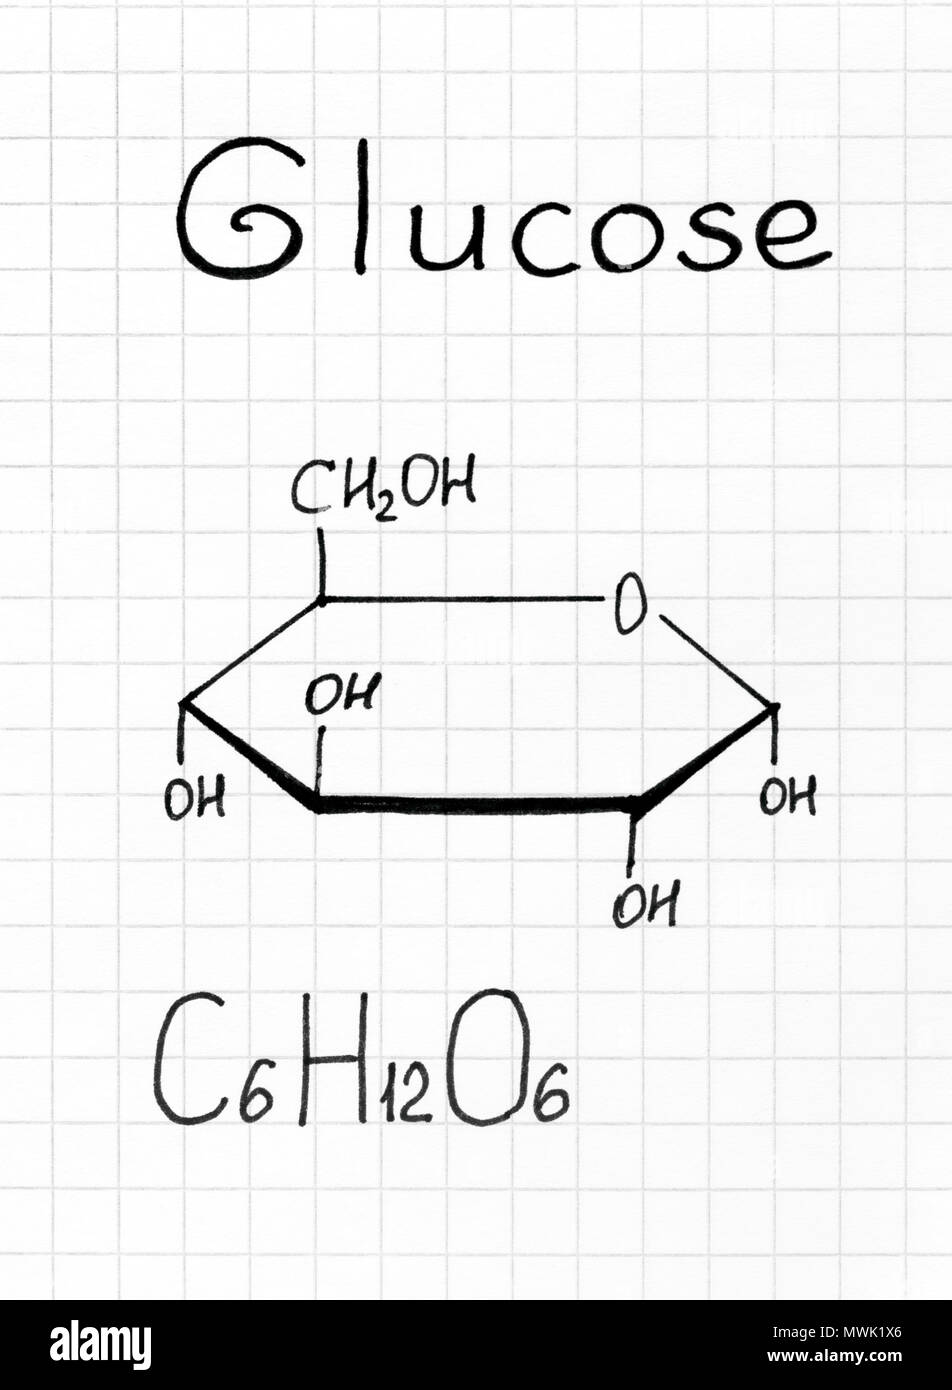 Glucose
CH₂OH
O
OH
OH
OH
OH
C₆H₁₂O₆
alamy
Image ID: MWK1X6
www.alamy.com